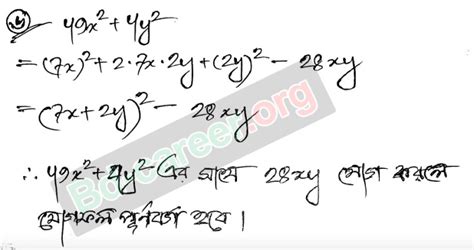 (b) 49x² + 4y²
= (7x)² + 2·7x·2y + (2y)² - 28xy
= (7x + 2y)² - 28xy
∴ 49x² + 4y² এর সাথে 28xy যোগ করলে
যোগফল পূর্ণবর্গ হবে।
Bdcareer.org